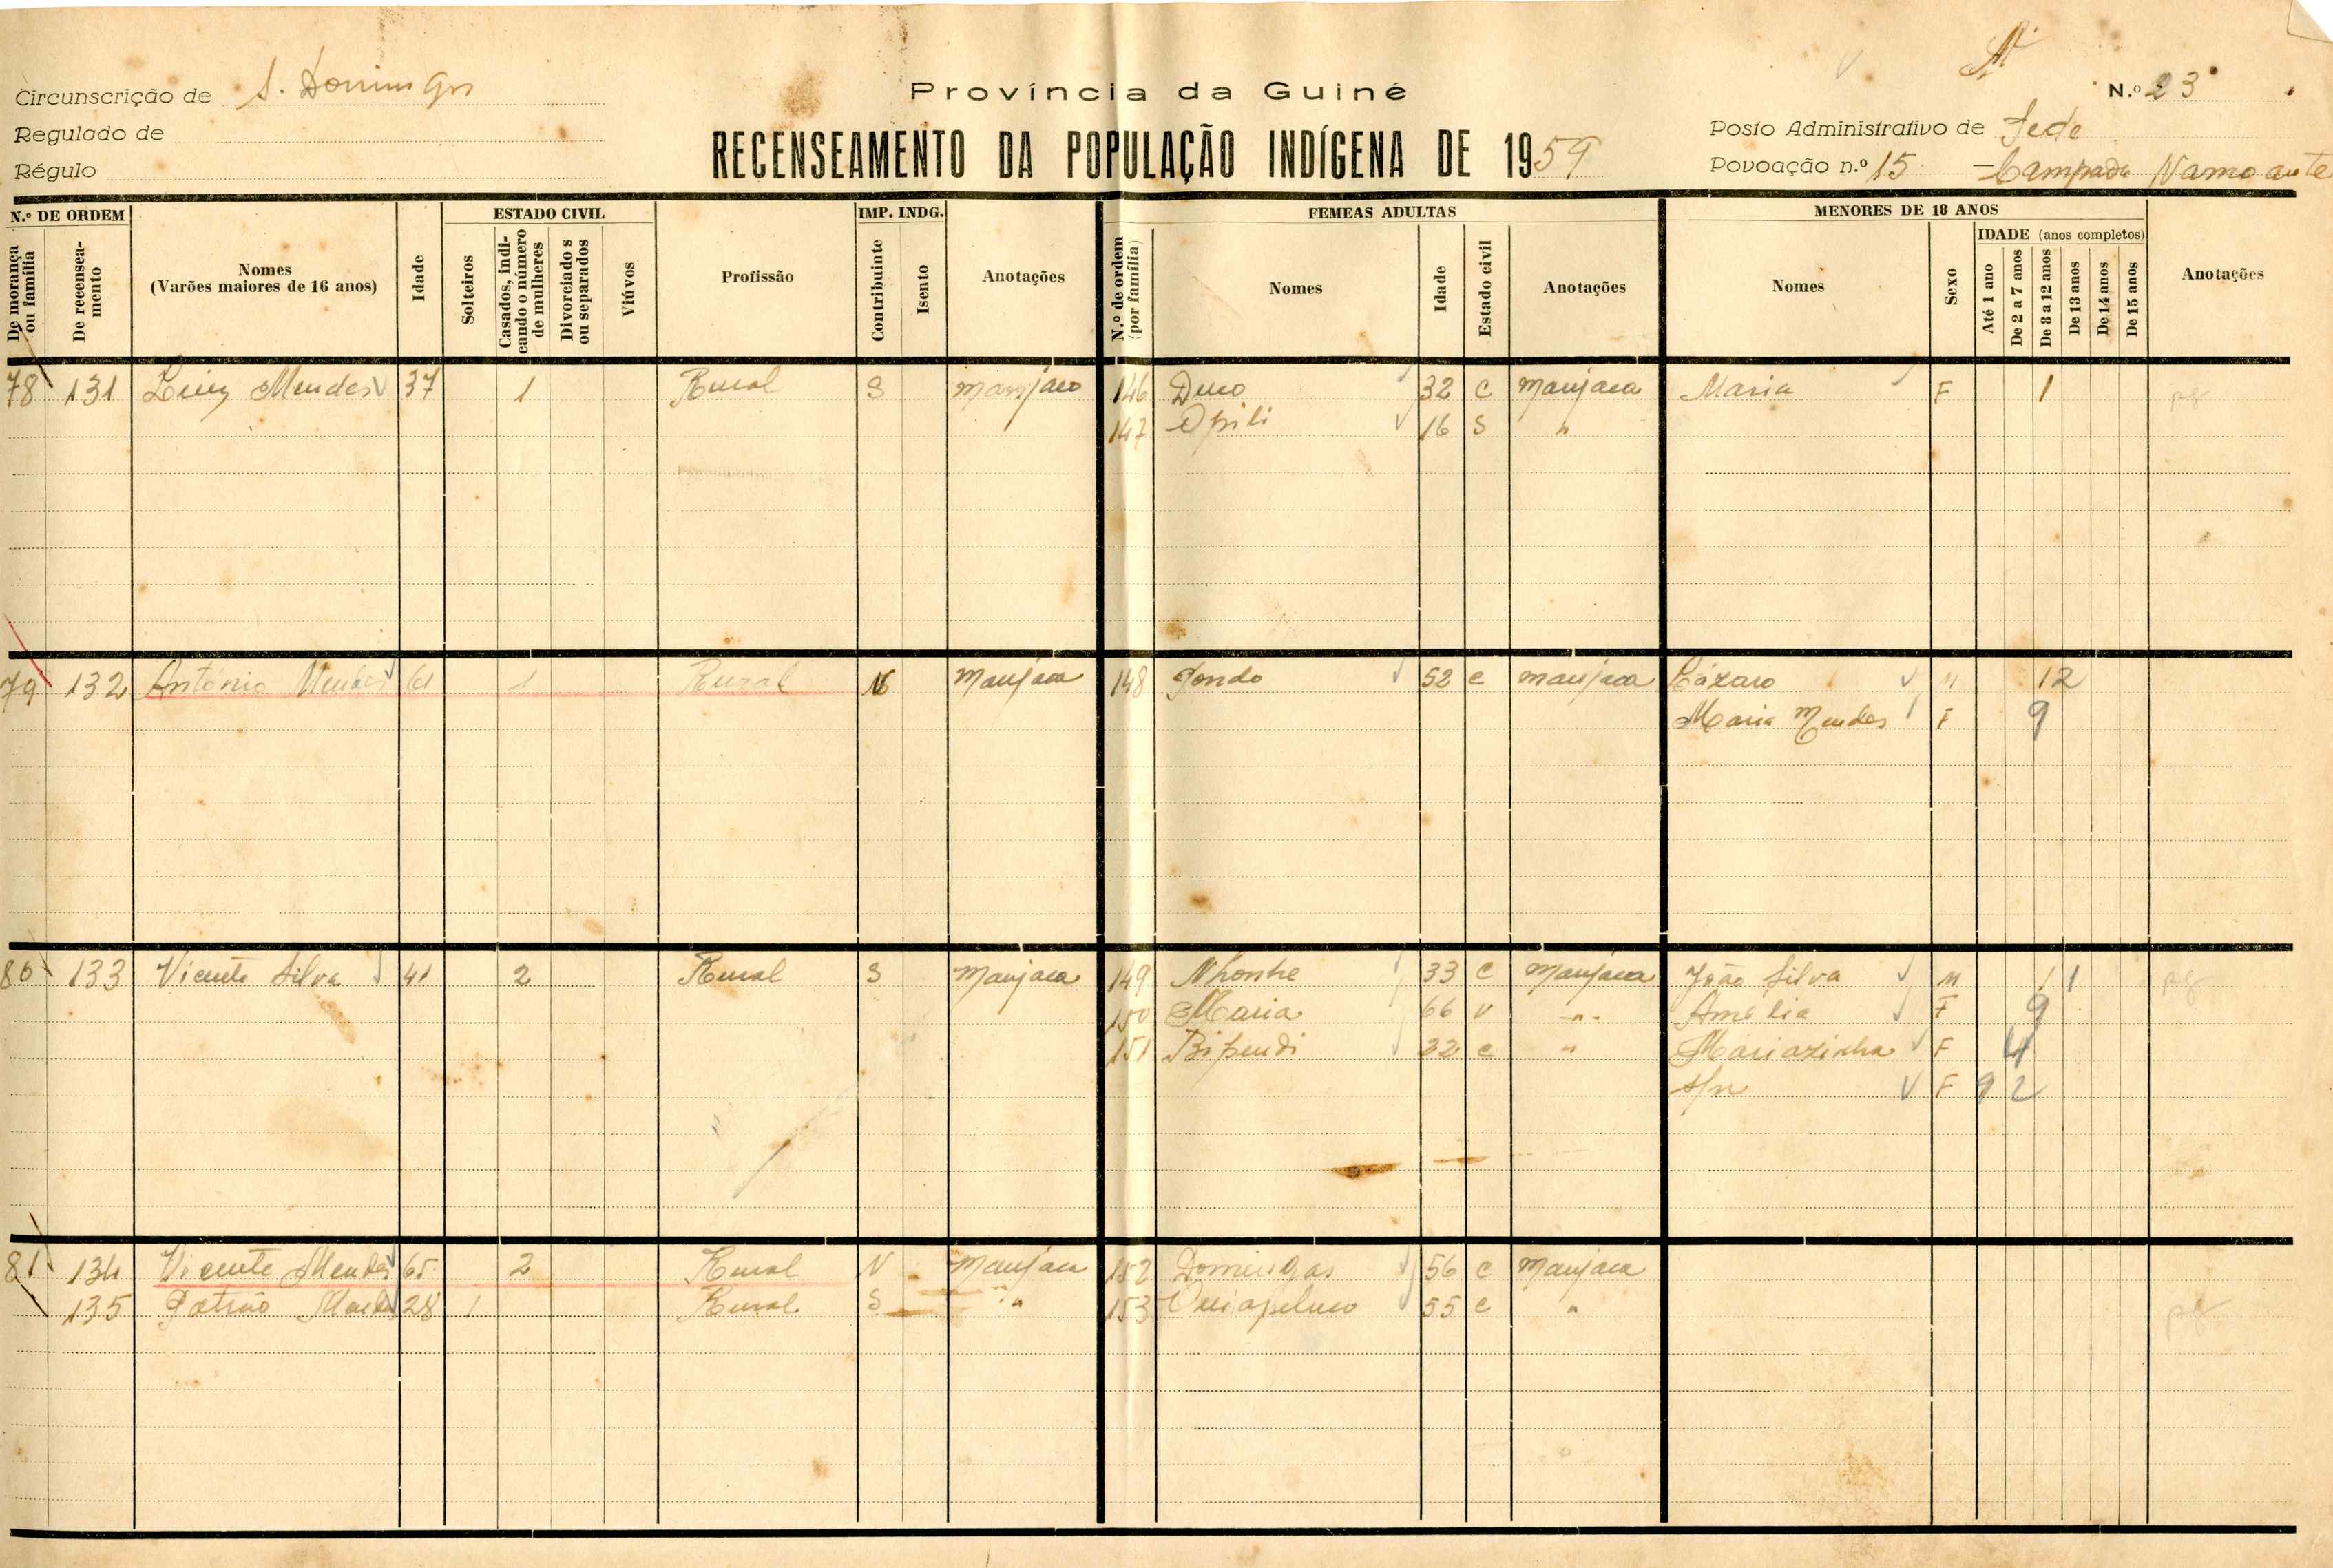 Circunscrição de S. Domingos
Província da Guiné
N.º 23
Regulado de
Posto Administrativo de Sede
RECENSEAMENTO DA POPULAÇÃO INDÍGENA DE 1959
Régulo
Povoação n.º 15 - Campada Namoante
N.º DE ORDEM
De morança ou família
De recenseamento
Nomes
(Varões maiores de 16 anos)
Idade
ESTADO CIVIL
Solteiros
Casados, indicando o número de mulheres
Divorciados ou separados
Viúvos
Profissão
IMP. INDG.
Contribuinte
Isento
Anotações
FEMEAS ADULTAS
N.º de ordem (por família)
Nomes
Idade
Estado civil
Anotações
MENORES DE 18 ANOS
Nomes
Sexo
IDADE (anos completos)
Até 1 ano
De 2 a 7 anos
De 8 a 12 anos
De 13 anos
De 14 anos
De 15 anos
Anotações
78 131 Luiz Mendes 37 1 Rural S manjaco 146 Duco 32 C manjaca Maria F 1 pg
147 Opili 16 S "
79 132 António Mendes 61 1 Rural N manjaca 148 Jondo 52 c manjaca Lázaro M 12
Maria Mendes F 9
80 133 Vicente Silva 41 2 Rural S manjaca 149 Nhonhe 33 C manjaca João Silva M 11 pg
150 Maria 66 V " Amélia F 9
151 Bipendi 32 c " Mariazinha F 4
s/n F 9 2
81 134 Vicente Mendes 65 2 Rural N manjaca 152 Domingas 56 c manjaca
135 Patrão Mendes 28 1 Rural S " 153 55 c " pg